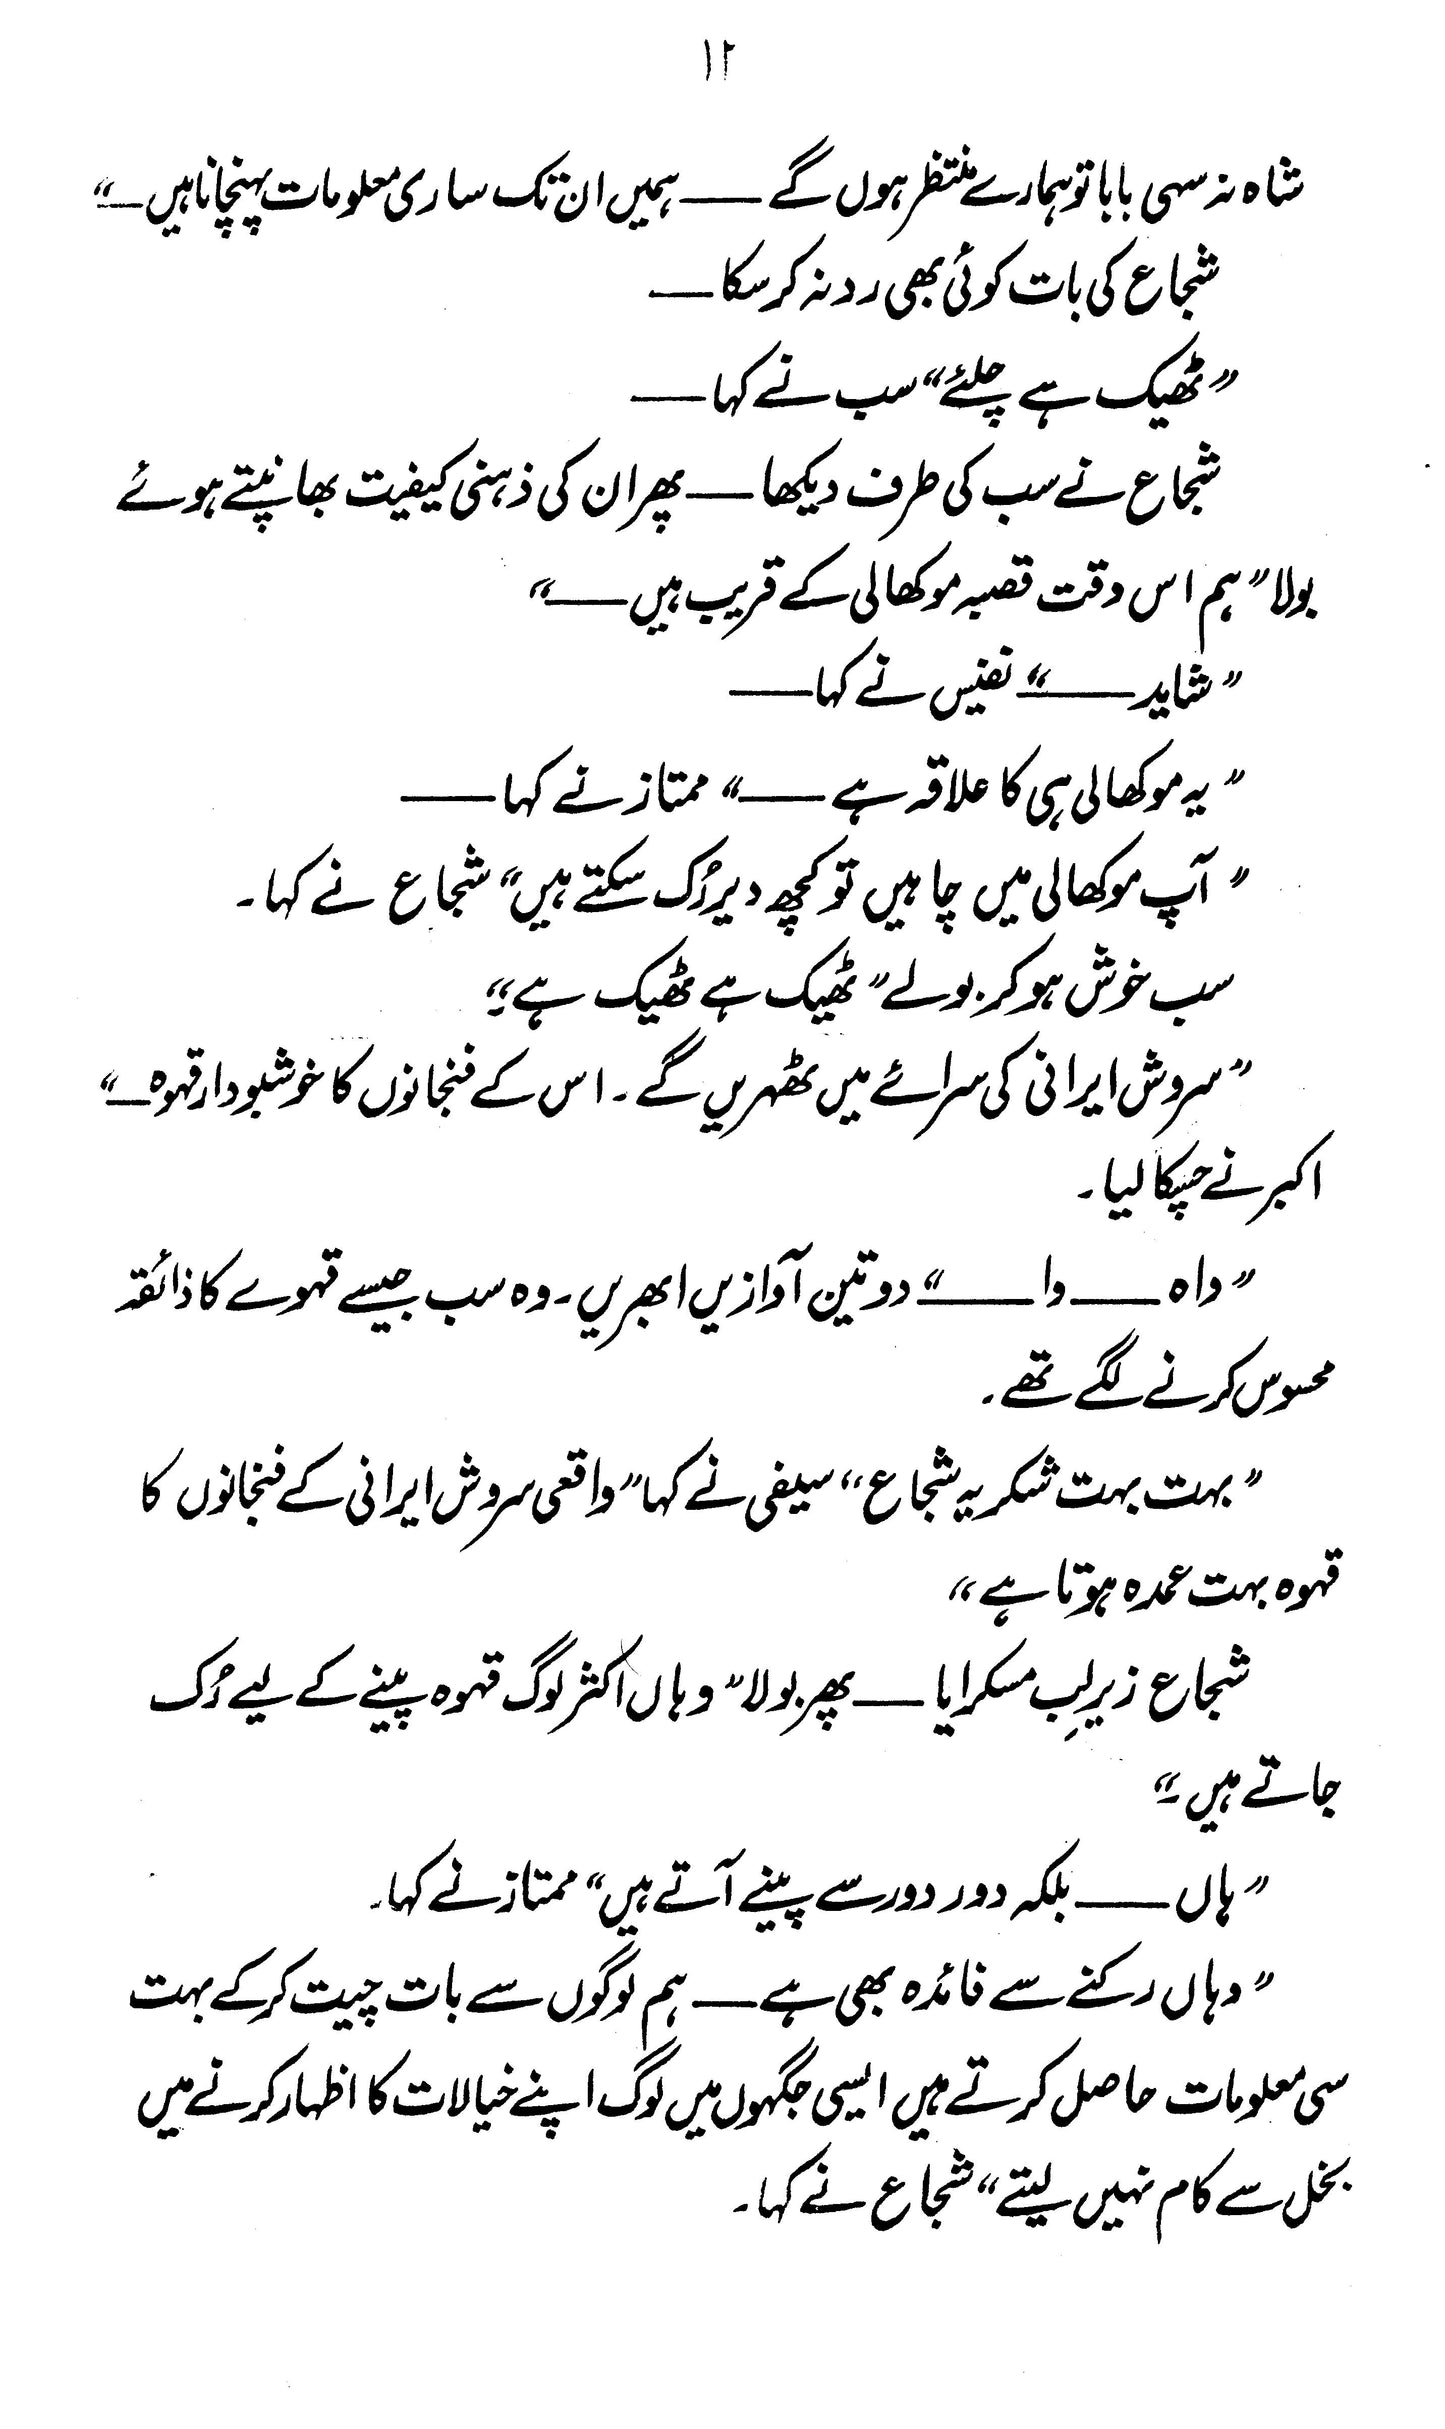 ۱۲
شاہ نہ سہی بابا تو ہمارے منتظر ہوں گے ــــ ہمیں ان تک ساری معلومات پہنچانا ہیں ــ“
شجاع کی بات کوئی بھی رد نہ کر سکا ــــ
”ٹھیک ہے چلئے“ سب نے کہا ــــ
شجاع نے سب کی طرف دیکھا ــــ پھر ان کی ذہنی کیفیت بھانپتے ہوئے
بولا ”ہم اس وقت قصبہ موکھالی کے قریب ہیں ــــ“
”شاید ــــ“ نفیس نے کہا ــــ
”یہ موکھالی ہی کا علاقہ ہے ــــ“ ممتاز نے کہا ــــ
”آپ موکھالی میں چاہیں تو کچھ دیر رُک سکتے ہیں“ شجاع نے کہا۔
سب خوش ہو کر بولے ”ٹھیک ہے ٹھیک ہے۔“
”سروش ایرانی کی سرائے میں ٹھہریں گے۔ اس کے فنجانوں کا خوشبودار قہوہ ــ“
اکبر نے چسکا لیا۔
”واہ ــــ وا ــــ“ دو تین آوازیں ابھریں۔ وہ سب جیسے قہوے کا ذائقہ
محسوس کرنے لگے تھے۔
”بہت بہت شکریہ شجاع“ سیفی نے کہا ”واقعی سروش ایرانی کے فنجانوں کا
قہوہ بہت عمدہ ہوتا ہے“
شجاع زیرِ لب مسکرایا ــــ پھر بولا ”وہاں اکثر لوگ قہوہ پینے کے لیے رُک
جاتے ہیں۔“
”ہاں ــــ بلکہ دور دور سے پینے آتے ہیں“ ممتاز نے کہا۔
”وہاں رکنے سے فائدہ بھی ہے ــــ ہم لوگوں سے بات چیت کر کے بہت
سی معلومات حاصل کرتے ہیں ایسی جگہوں میں لوگ اپنے خیالات کا اظہار کرنے میں
بخل سے کام نہیں لیتے“ شجاع نے کہا۔